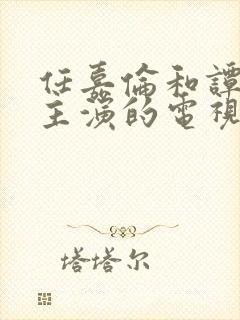 任嘉倫和譚
主演的電視
塔塔尔